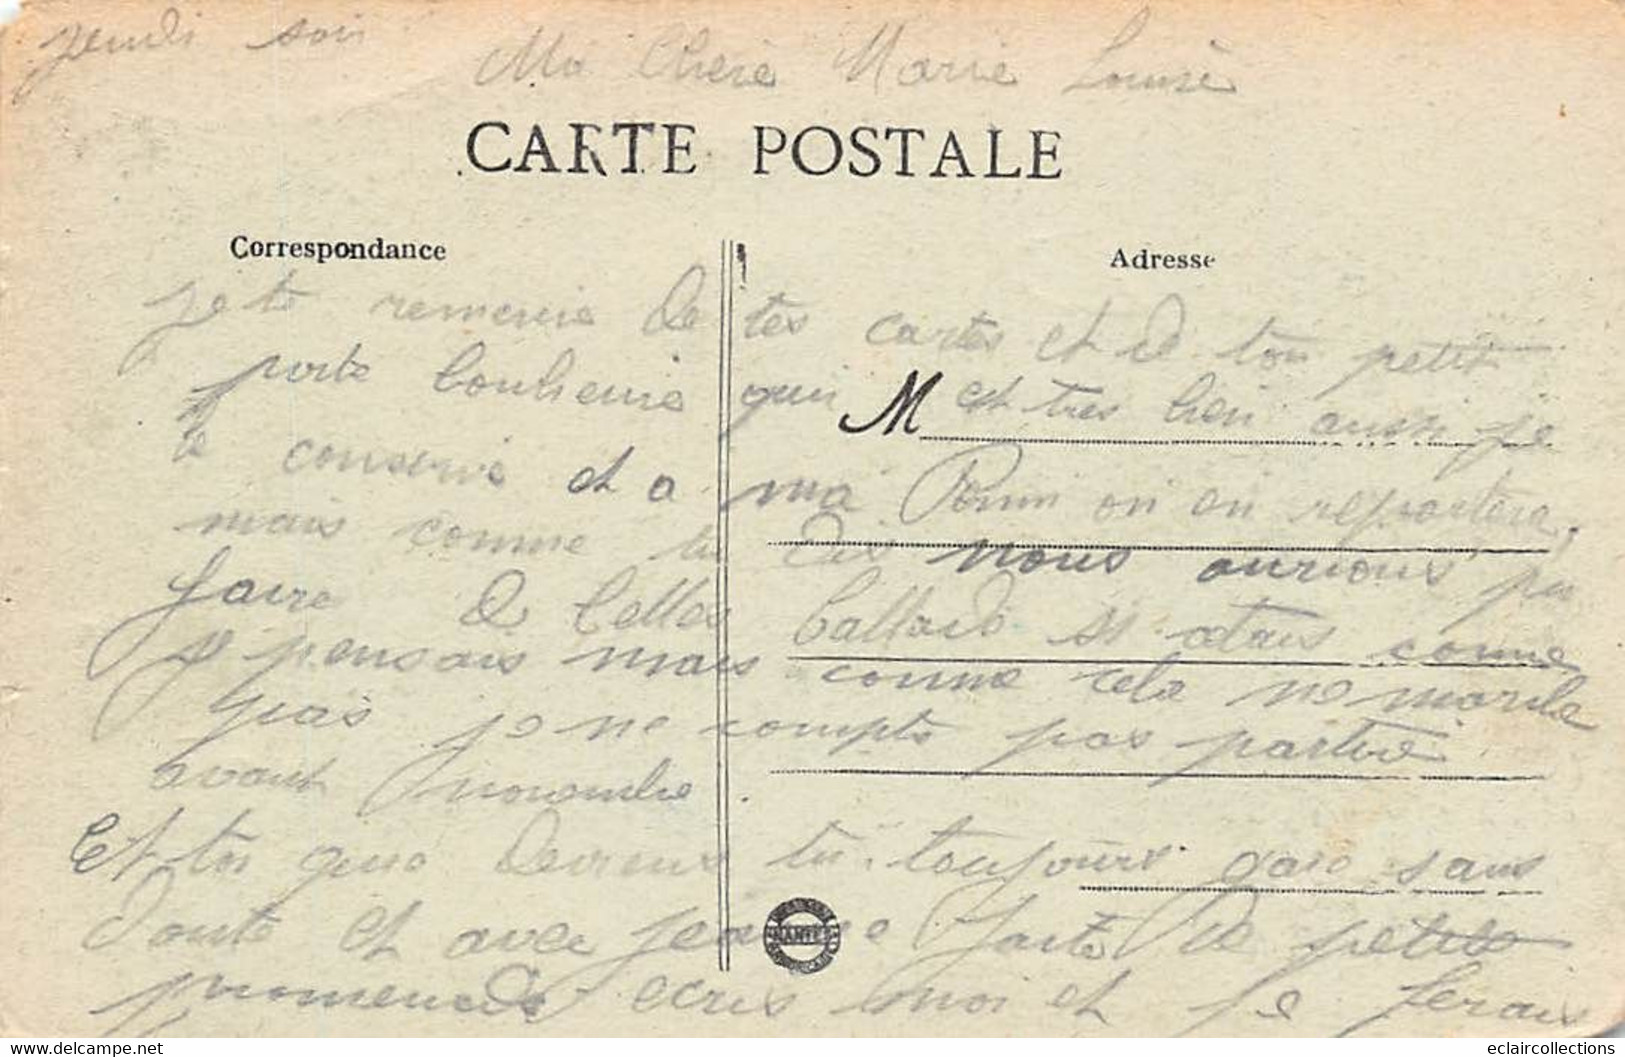 jeudi soir
Ma Chere Marie Louise
CARTE POSTALE
Correspondance
Adresse
je te remercie de tes cartes et de ton petit
porte bonheur qui est tres bien aussi je
M
le conserve et a ma on en reportera,
mais comme tu dis nous aurions pu
faire de belles ballade si cetais comme
je pensais mais comme cela ne marche
pas je ne compte pas partire
avant novembre
Et toi que deviens tu toujours gaie sans
doute et avec jeanne faite de petites
NANTES
promenade ecris moi et je ferais
delcampe.net
eclaircollections